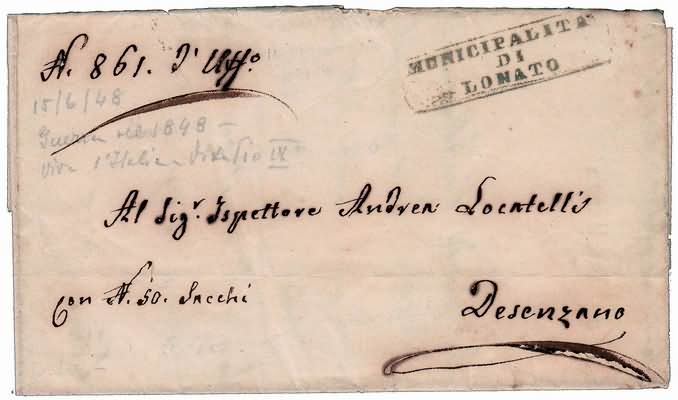 N. 861. D' Uffo.
MUNICIPALITA
DI
LONATO
15/6/48
Guerra del 1848 -
Viva l'Italia e Viva Pio IX
Al Sigr. Ispettore Andrea Locatelli
con N. 50. Sacchi
Desenzano